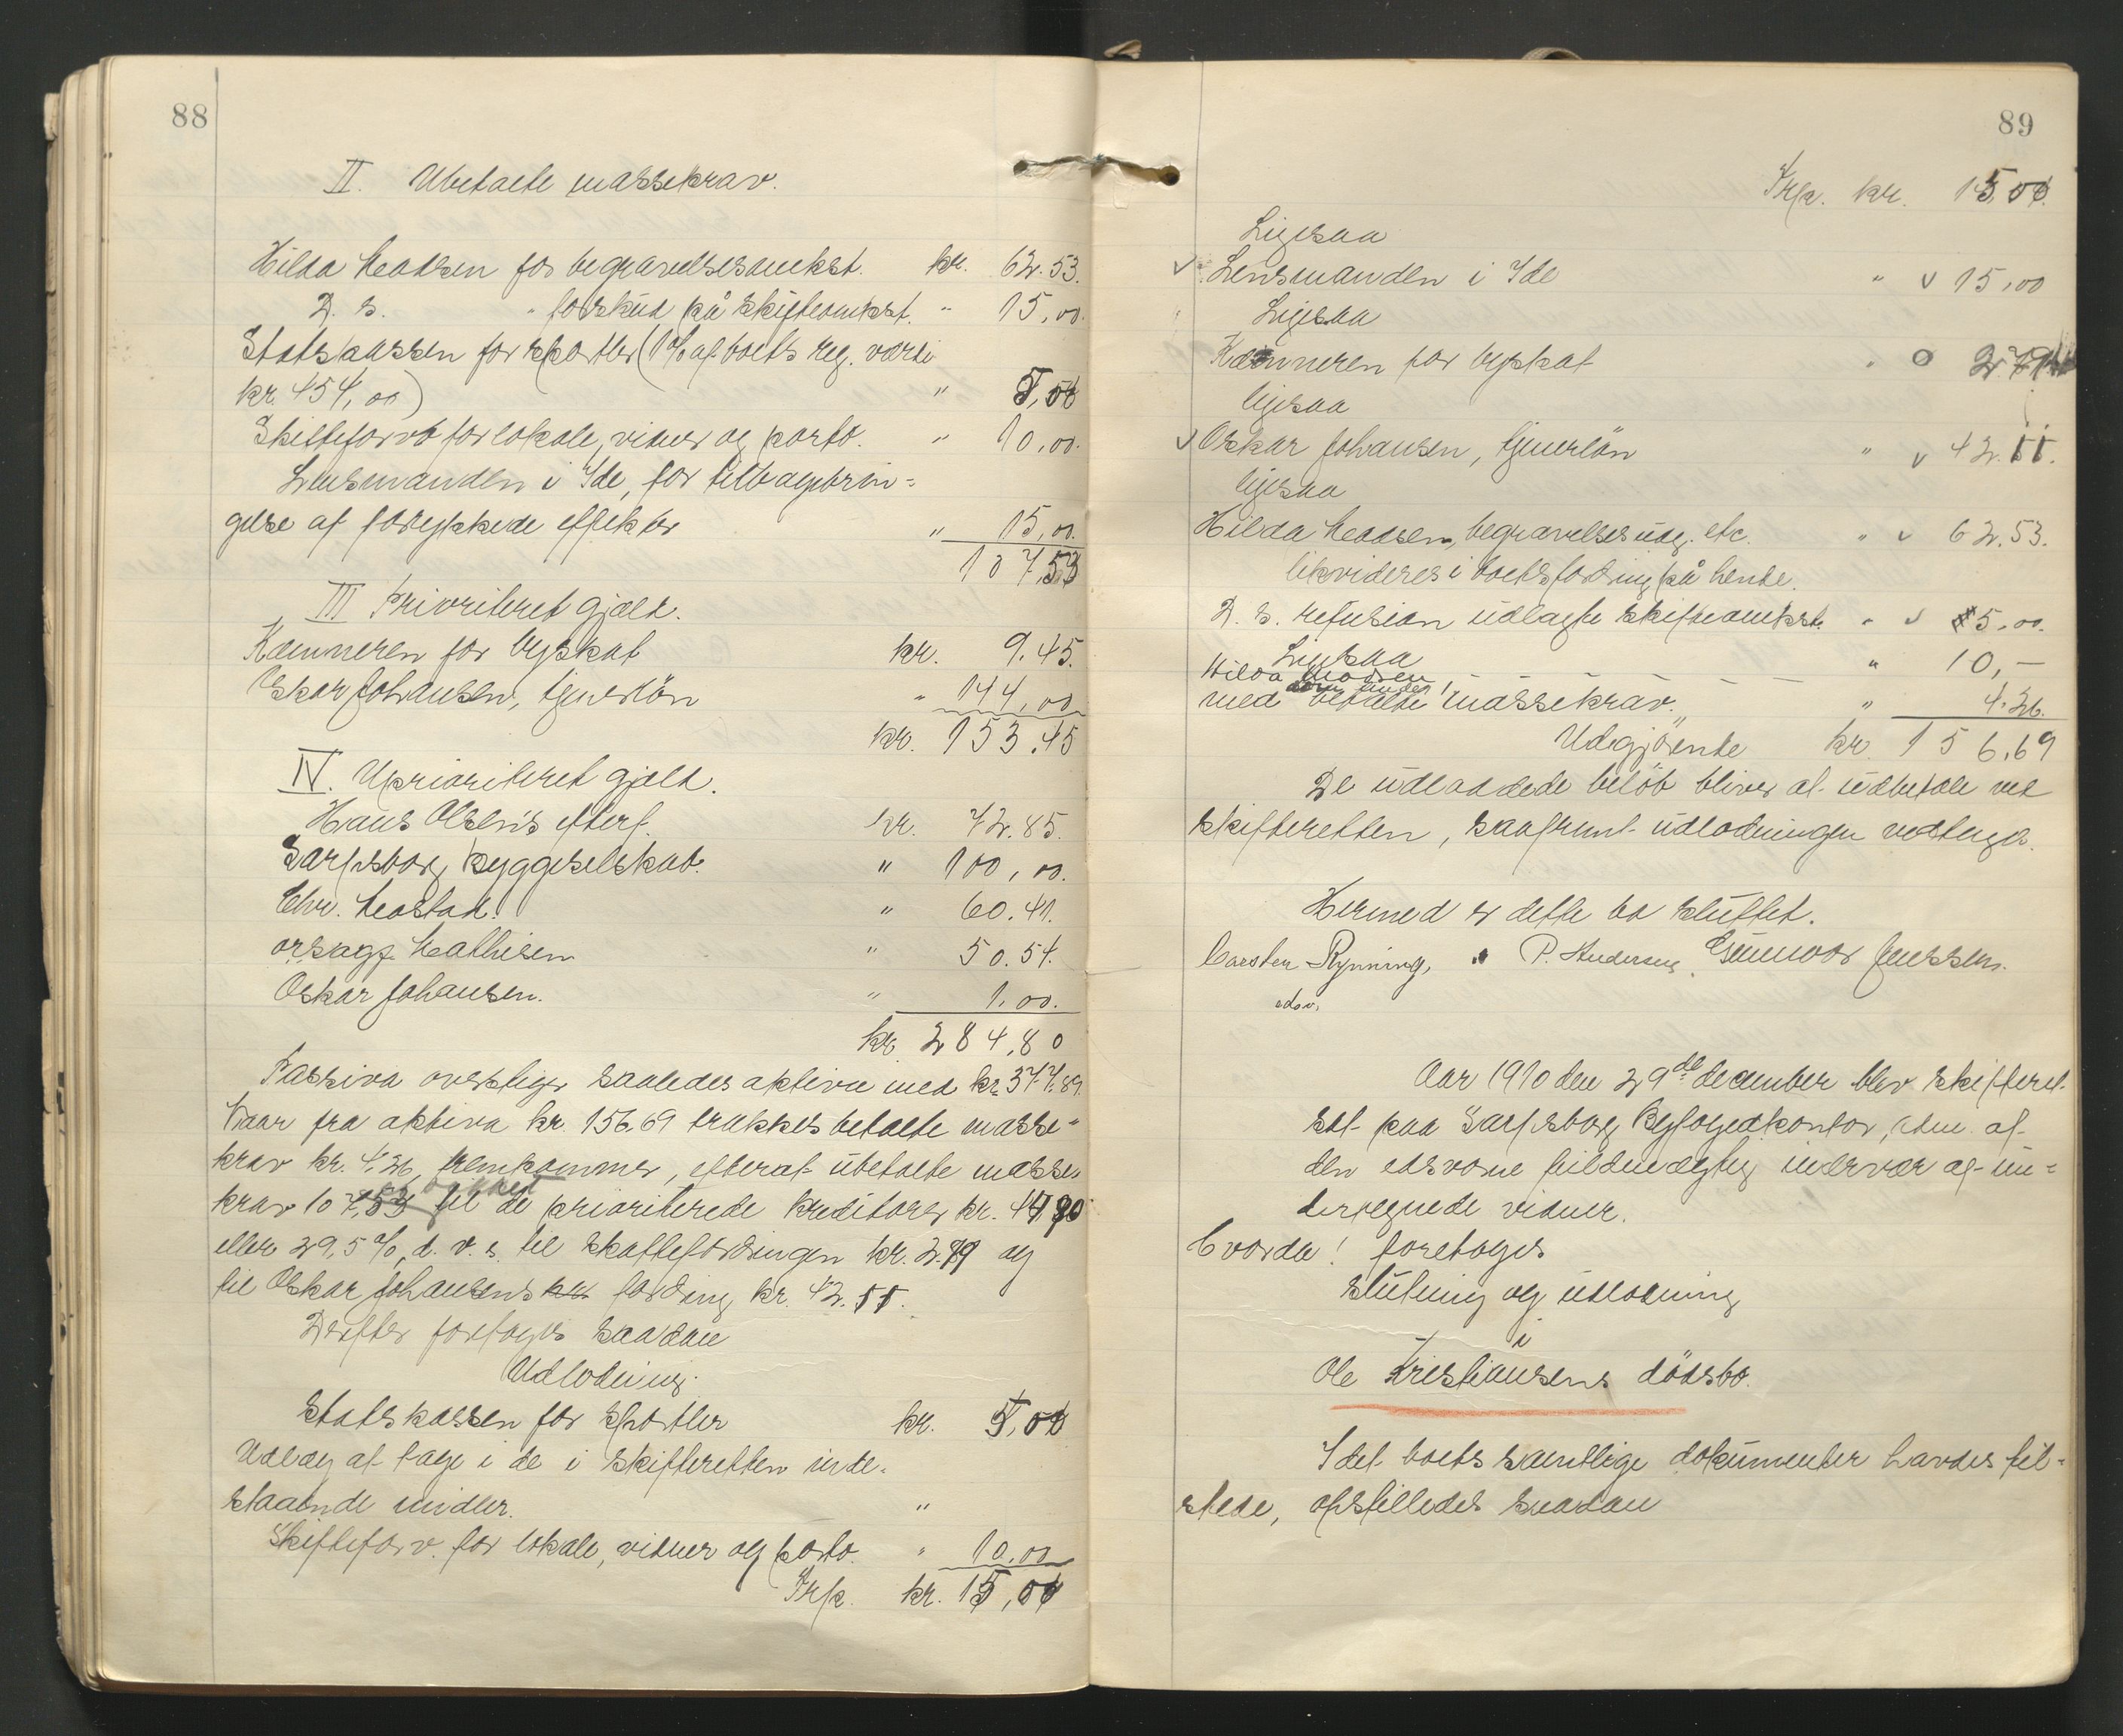 88
II. Ubetalte massekrav.
Hilda Madsen for begravelsesomkst. kr. 62.53.
D. s. " forskud på skifteomkst. " 15,00.
Statskassen for sportler (1% af boets reg. værdi
kr. 454,00) " 5,00
Skifteforv for lokale, vidner og porto. " 10.00.
Lensmanden i Ide, for tilbagebrin=
gelse af forrykkede effekter " 15,00.
107,53
III Prioriteret gjæld.
Kæmneren for byskat kr. 9.45.
Oskar Johansen, tjenerlön " 144,00
kr. 153.45
IV. Uprioriteret gjæld.
Hans Olsen's efterf. kr. 72.85.
Sarpsborg byggeselskab. " 100,00.
Chr. Mostad. " 60.41.
orsagf. Mathisen " 50.54.
Oskar Johansen. " 1.00.
kr. 284,80
Passiva overstiger saaledes aktiva med kr. 377.89.
Naar fra aktiva kr. 156,69 trækkes betalte masse=
krav kr. 4,26, fremkommer, efterat ubetalte masse-
krav 107,53 til de prioriterede kreditorer kr. 44,90
eller 29,5%, d. v. s. til skattefordringen kr. 2.79 og
til Oskar Johansens fordring kr. 42.11.
Derefter foretoges saadan
Udlodning.
Statskassen for sportler kr. 5,00
Udlæg at tage i de i skifteretten inde-
staaende midler. "
Skifteforv. for lokale, vidner og porto. " 10.00
Trp. kr. 15,00
89
Trp. kr. 15,00.
Ligesaa
Lensmanden i Ide " v 15,00
Ligesaa
Kæmneren for byskat " o 2.79
ligesaa
Oskar Johansen, tjenerlön " v 42.11.
ligesaa
Hilda Madsen, begravelsesudg. etc. " v 62.53.
likvideres i boets fordring på hende.
D. s. refusion udlagte skifteomkst. " v 5,00.
Ligesaa " 10,—
Hilda Madsen
med betalte massekrav. " 4.26.
Udgjörende kr. 156,69
De udloddede belöb bliver at udbetale ved
skifteretten, saafremt udlodningen vedtages.
Hermed er dette bo sluttet.
Carsten Rynning, P. Andersen, Gunvor Jenssen.
edsv.
Aar 1910 den 29de december blev skifteret
sat paa Sarpsborg Byfogedkontor, adm. af
den edsvorne fuldmægtig i nærvær af un=
dertegnede vidner.
Hvorda! foretoges
slutning og udlodning
i
Ole Kristiansens dödsbo.
Idet boets samtlige dokumenter havdes til=
stede, opstilledes saadan